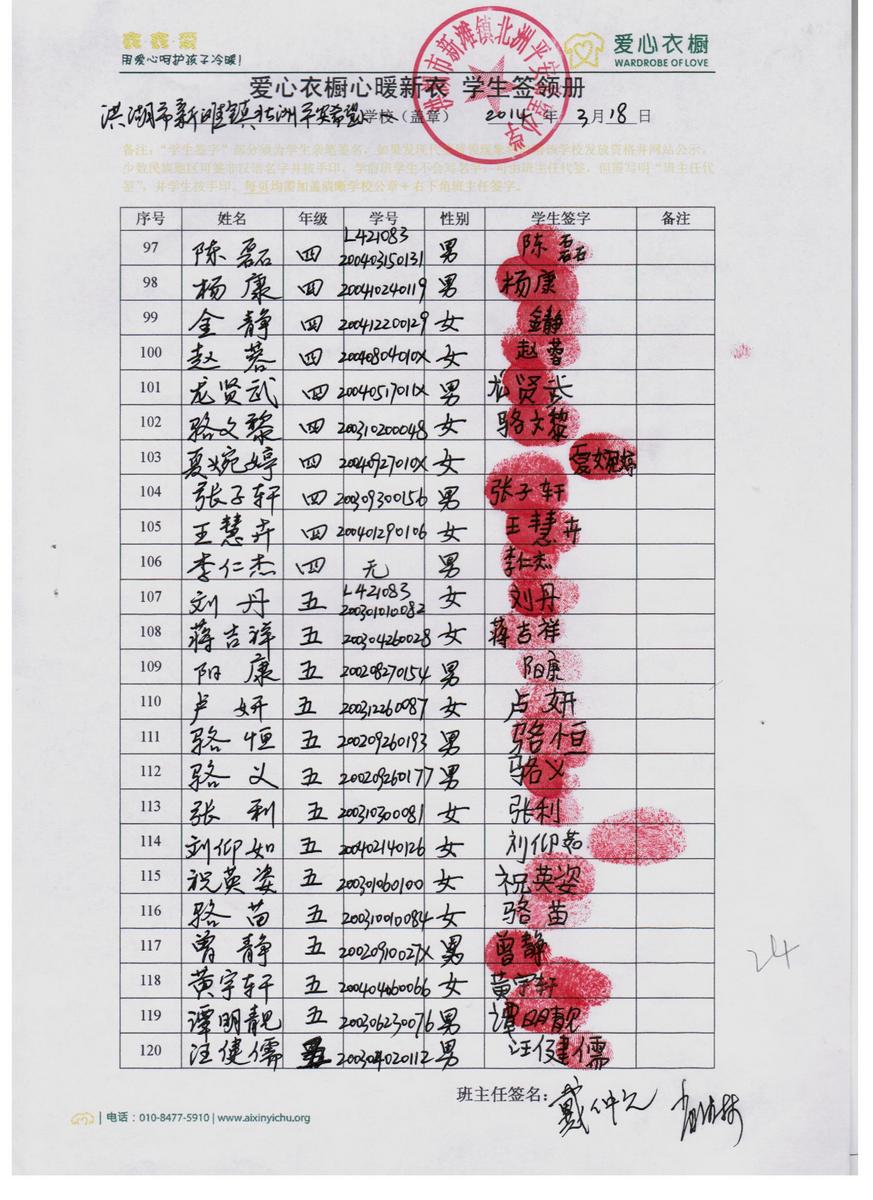 鑫鑫·爱
用爱心呵护孩子冷暖!
爱心衣橱
WARDROBE OF LOVE
爱心衣橱心暖新衣 学生签领册
洪湖市新滩镇北洲平安希望 学校（盖章） 2014 年 3 月 18 日
洪湖市新滩镇北洲平安希望小学
备注："学生签字"部分须为学生亲笔签名，如果发现代
少数民族地区可签非汉语名字并按手印，学前班学生不会写名字，可由班主任代签，但需写明"班主任代
签"，并学生按手印。每页均需加盖清晰学校公章+右下角班主任签字。
序号 姓名 年级 学号 性别 学生签字 备注
97 陈磊 四 L421083 200403150131 男 陈磊
98 杨康 四 200410240119 男 杨康
99 金静 四 200412200129 女 金静
100 赵蓉 四 20040804010X 女 赵蓉
101 龙贤武 四 20040517011X 男 龙贤武
102 骆文黎 四 200310200048 女 骆文黎
103 夏婉婷 四 20040927010X 女 夏婉婷
104 张子轩 四 200309300156 男 张子轩
105 王慧卉 四 200401290106 女 王慧卉
106 李仁杰 四 无 男 李仁杰
107 刘丹 五 L421083 200301010082 女 刘丹
108 蒋吉祥 五 200304260028 女 蒋吉祥
109 阳康 五 200208270154 男 阳康
110 卢妍 五 200312260087 女 卢妍
111 骆恒 五 200209260193 男 骆恒
112 骆义 五 200209260177 男 骆义
113 张利 五 200310300081 女 张利
114 刘仰如 五 200402140126 女 刘仰茹
115 祝英姿 五 200301060100 女 祝英姿
116 骆苗 五 200310010084 女 骆苗
117 曾静 五 20020910027X 男 曾静
118 黄宇轩 五 200404060066 女 黄宇轩
119 谭明靓 五 200306230076 男 谭明靓
120 汪健儒 五 200304020112 男 汪健儒
24
班主任签名：戴仲元
电话：010-8477-5910 | www.aixinyichu.org